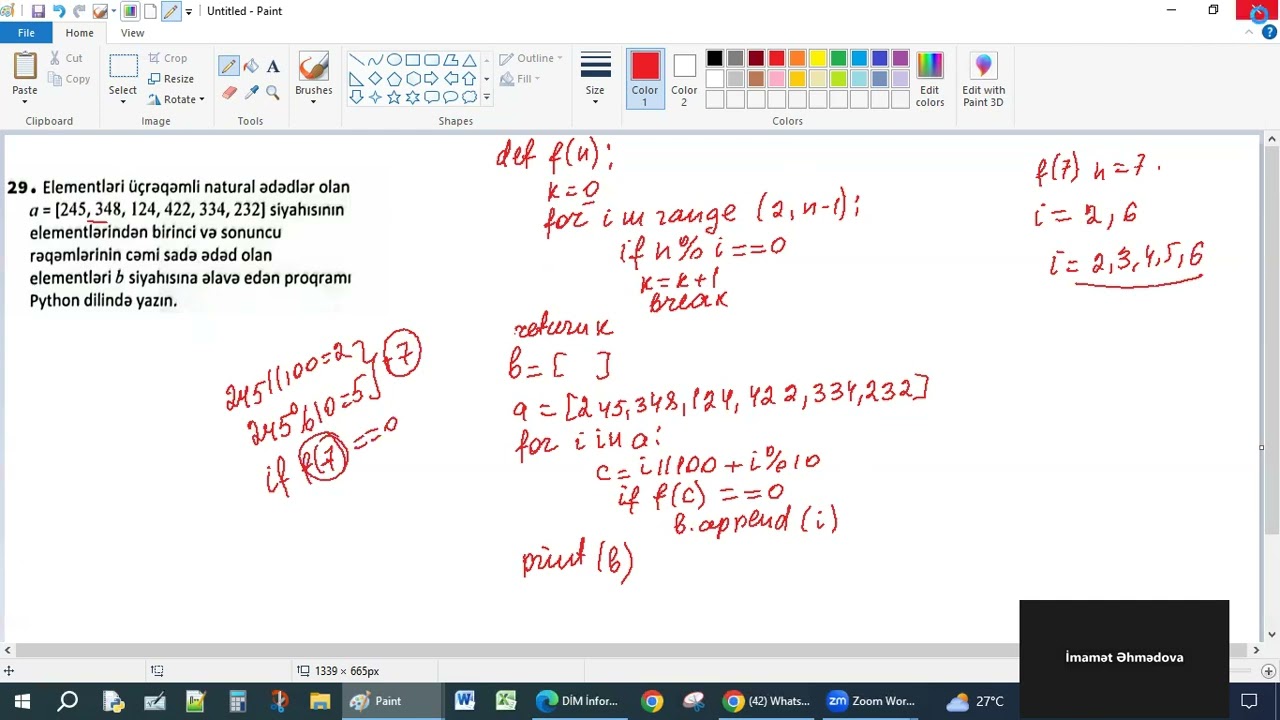 Untitled - Paint
File Home View
Paste
Cut
Copy
Clipboard
Select
Crop
Resize
Rotate
Image
Tools
Brushes
Shapes
Outline
Fill
Size
Color 1
Color 2
Colors
Edit colors
Edit with Paint 3D
29. Elementləri üçrəqəmli natural ədədlər olan
a = [245, 348, 124, 422, 334, 232] siyahısının
elementlərindən birinci və sonuncu
rəqəmlərinin cəmi sadə ədəd olan
elementləri b siyahısına əlavə edən proqramı
Python dilində yazın.
245//100=2
245%10=5
7
if f(7)==0
def f(n):
k=0
for i in range (2, n-1):
if n% i==0
k=k+1
break
return k
b=[ ]
a=[245,348,124,422,334,232]
for i in a:
c=i//100+i%10
if f(c)==0
b.append(i)
print(b)
f(7) n=7.
i=2,6
i=2,3,4,5,6
İmamət Əhmədova
1339 × 665px
Paint
DİM İnfor...
(42) Whats...
Zoom Wor...
27°C